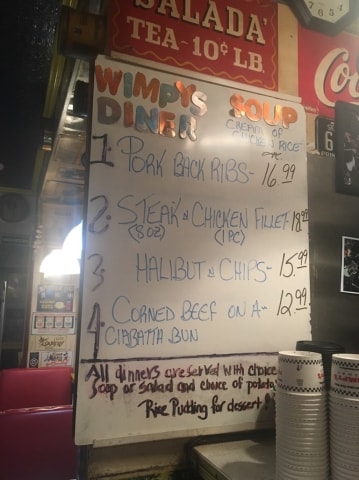 "SALADA"
TEA - 10¢ LB.
Coca
WIMPY'S SOUP
DINER CREAM OF
CHICKEN RICE
ETC.
1. PORK BACK RIBS - 16.99
2. STEAK & CHICKEN FILLET - 18.99
(8 OZ) (1 PC)
3 HALIBUT & CHIPS - 15.99
4 CORNED BEEF ON A - 12.99
CIABATTA BUN
All dinners are served with choice
Soup or salad and choice of potato
Rice Pudding for dessert!